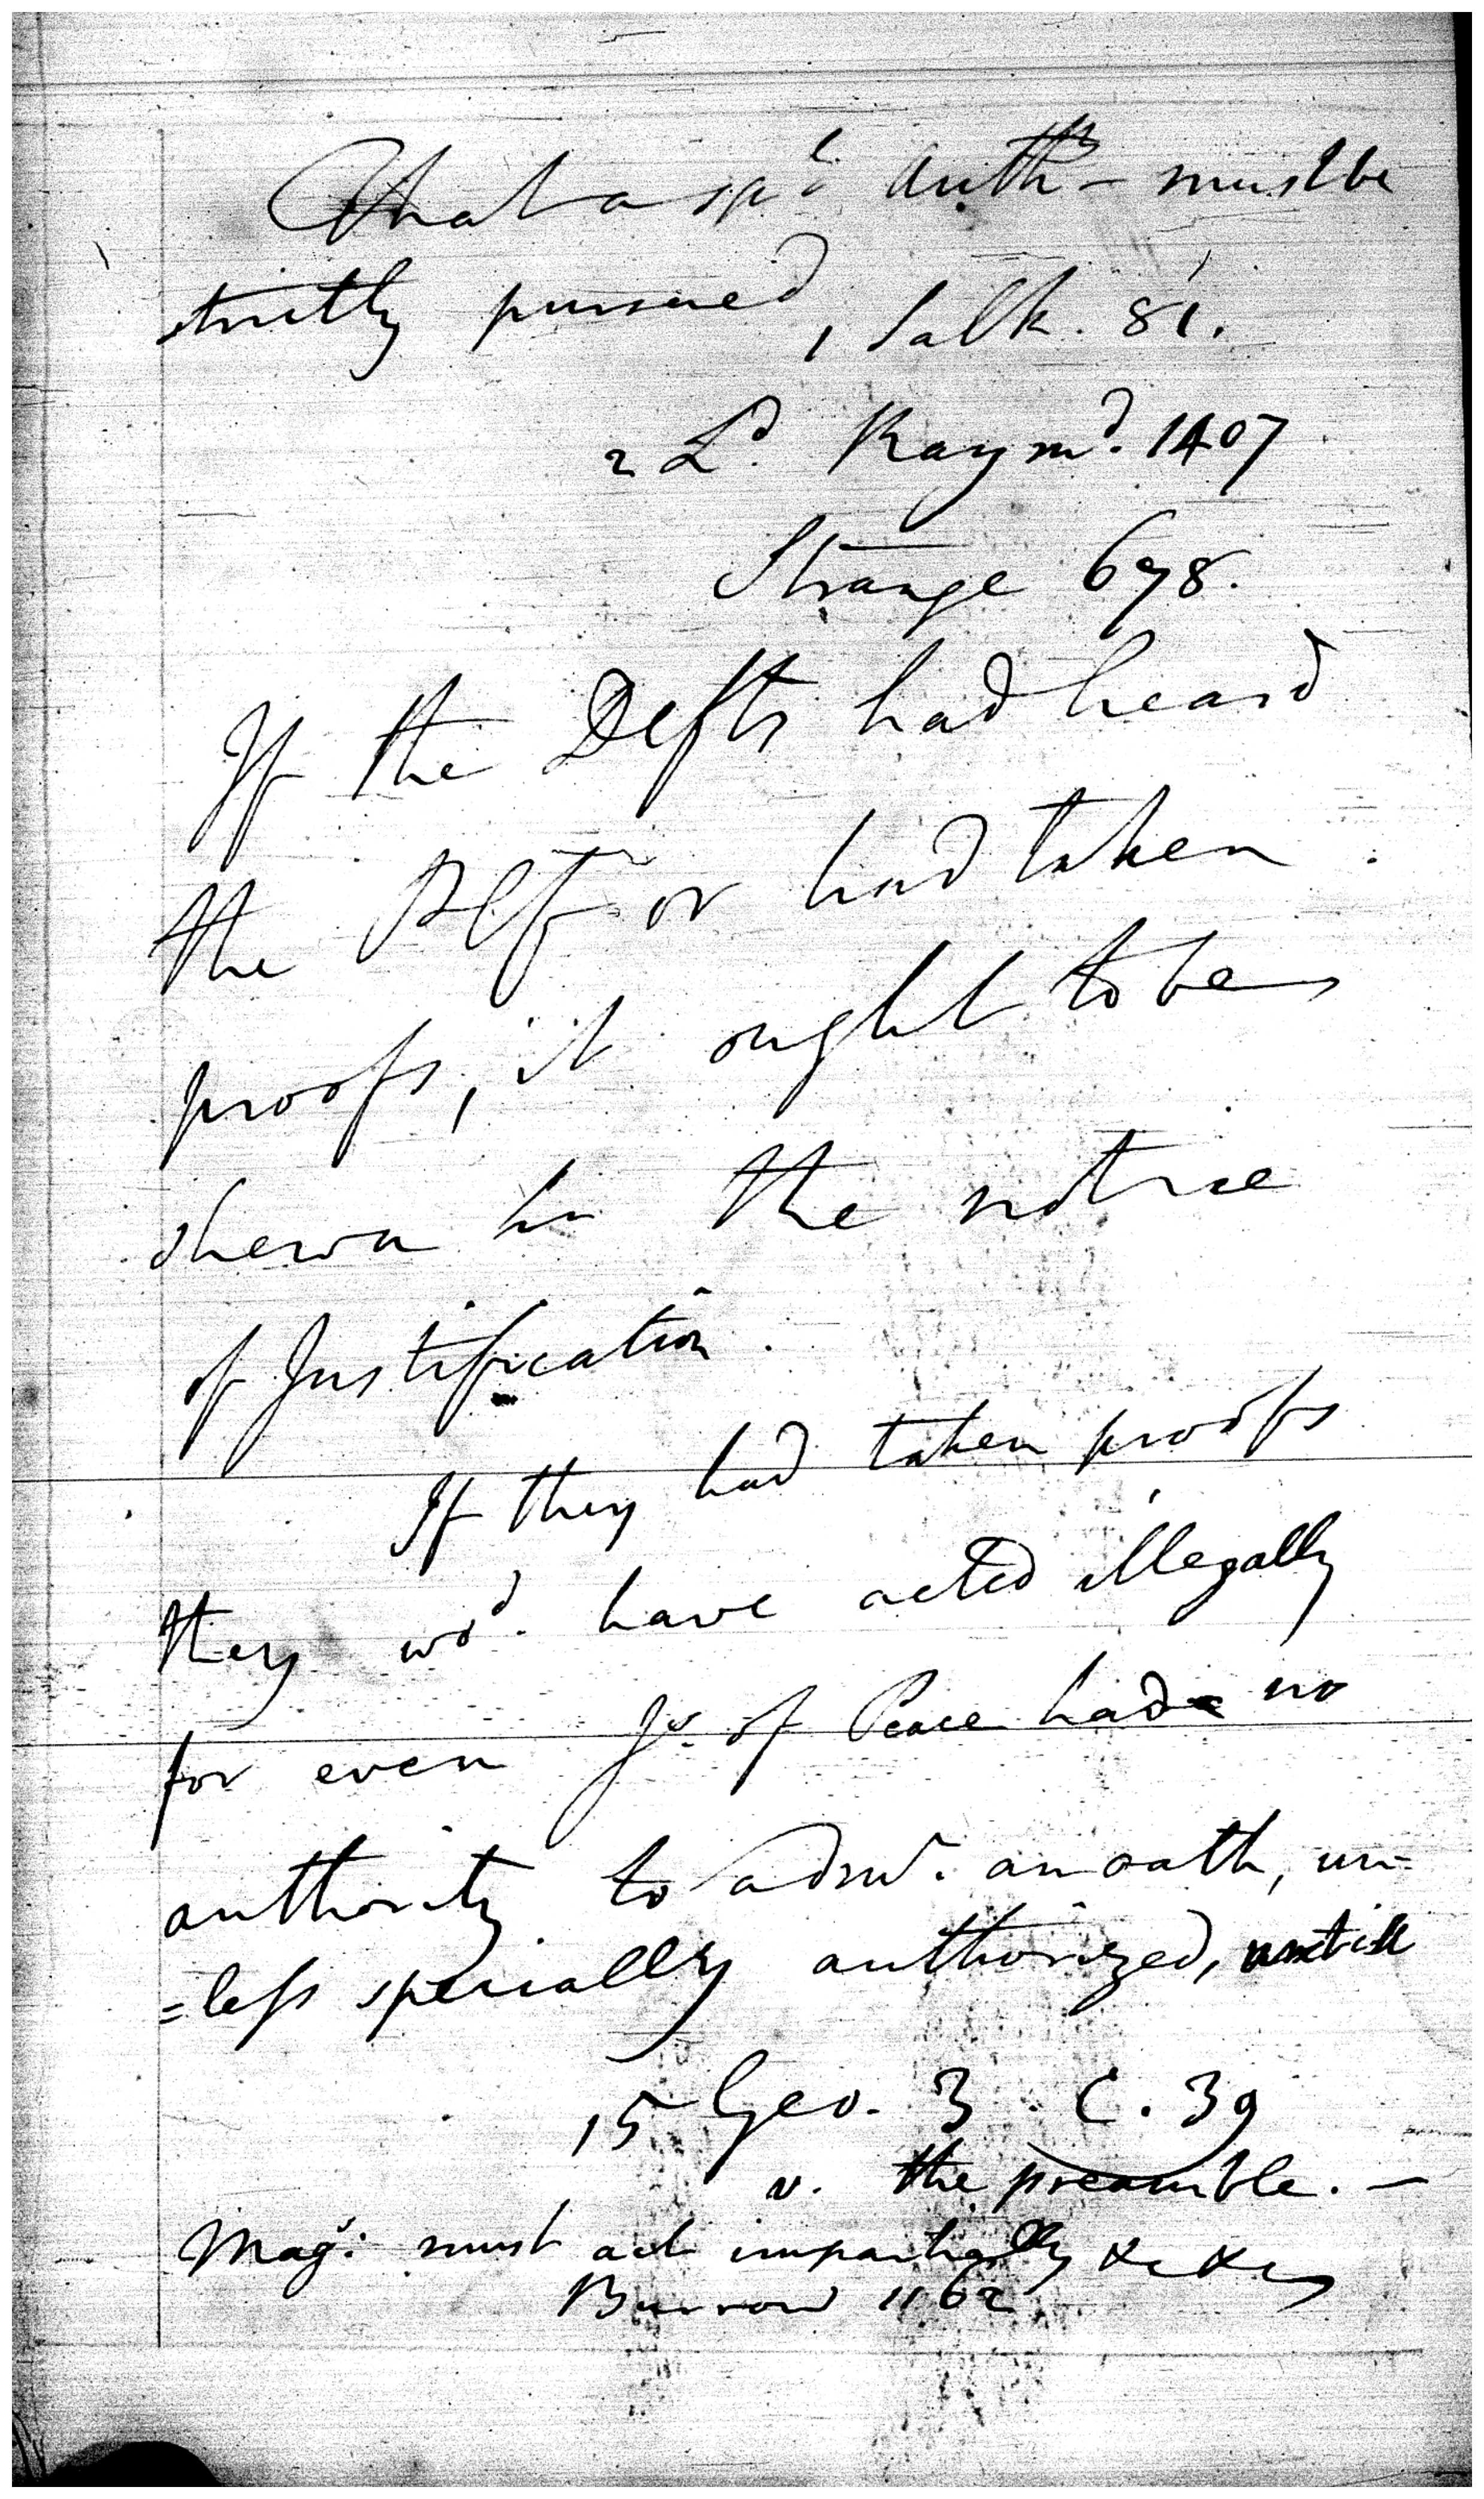 That a spl Authy must be
strictly pursued, Salk. 81.
2 Ld. Raymd. 1407
Strange 678.
If the Defts had heard
the Plf or had taken
proofs, it ought to be
shewn in the notice
of Justification.
If they had taken proofs
they wod. have acted illegally
for even Js. of Peace had no
authority to admr. an oath, un=
=less specially authorized, untill
15 Geo. 3. C. 39
v. the preamble. —
Mags: must act impartially &c &c
Burrow 1162